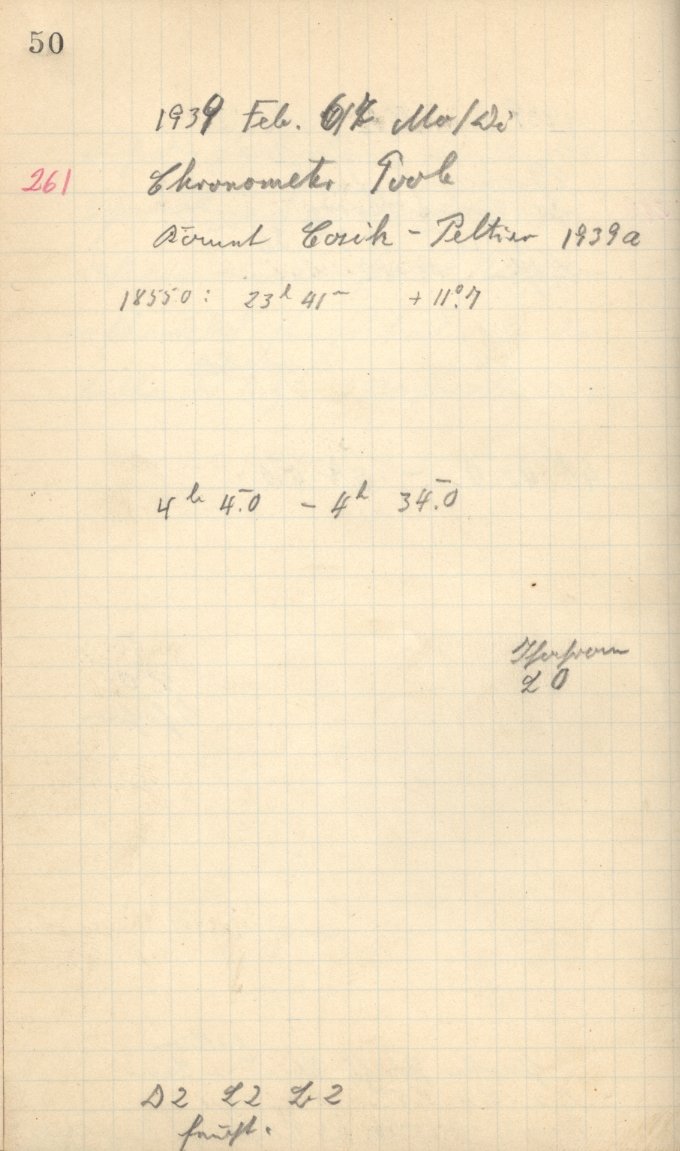 50
1939 Feb. 6/7 Mo/Di
261
Chronometer Poole
Komet Cosik - Peltier 1939a
1855.0: 23h 41m + 11°.7
4h 4m.0 - 4h 34m.0
L 0
D2 L2 Lb 2
feucht.